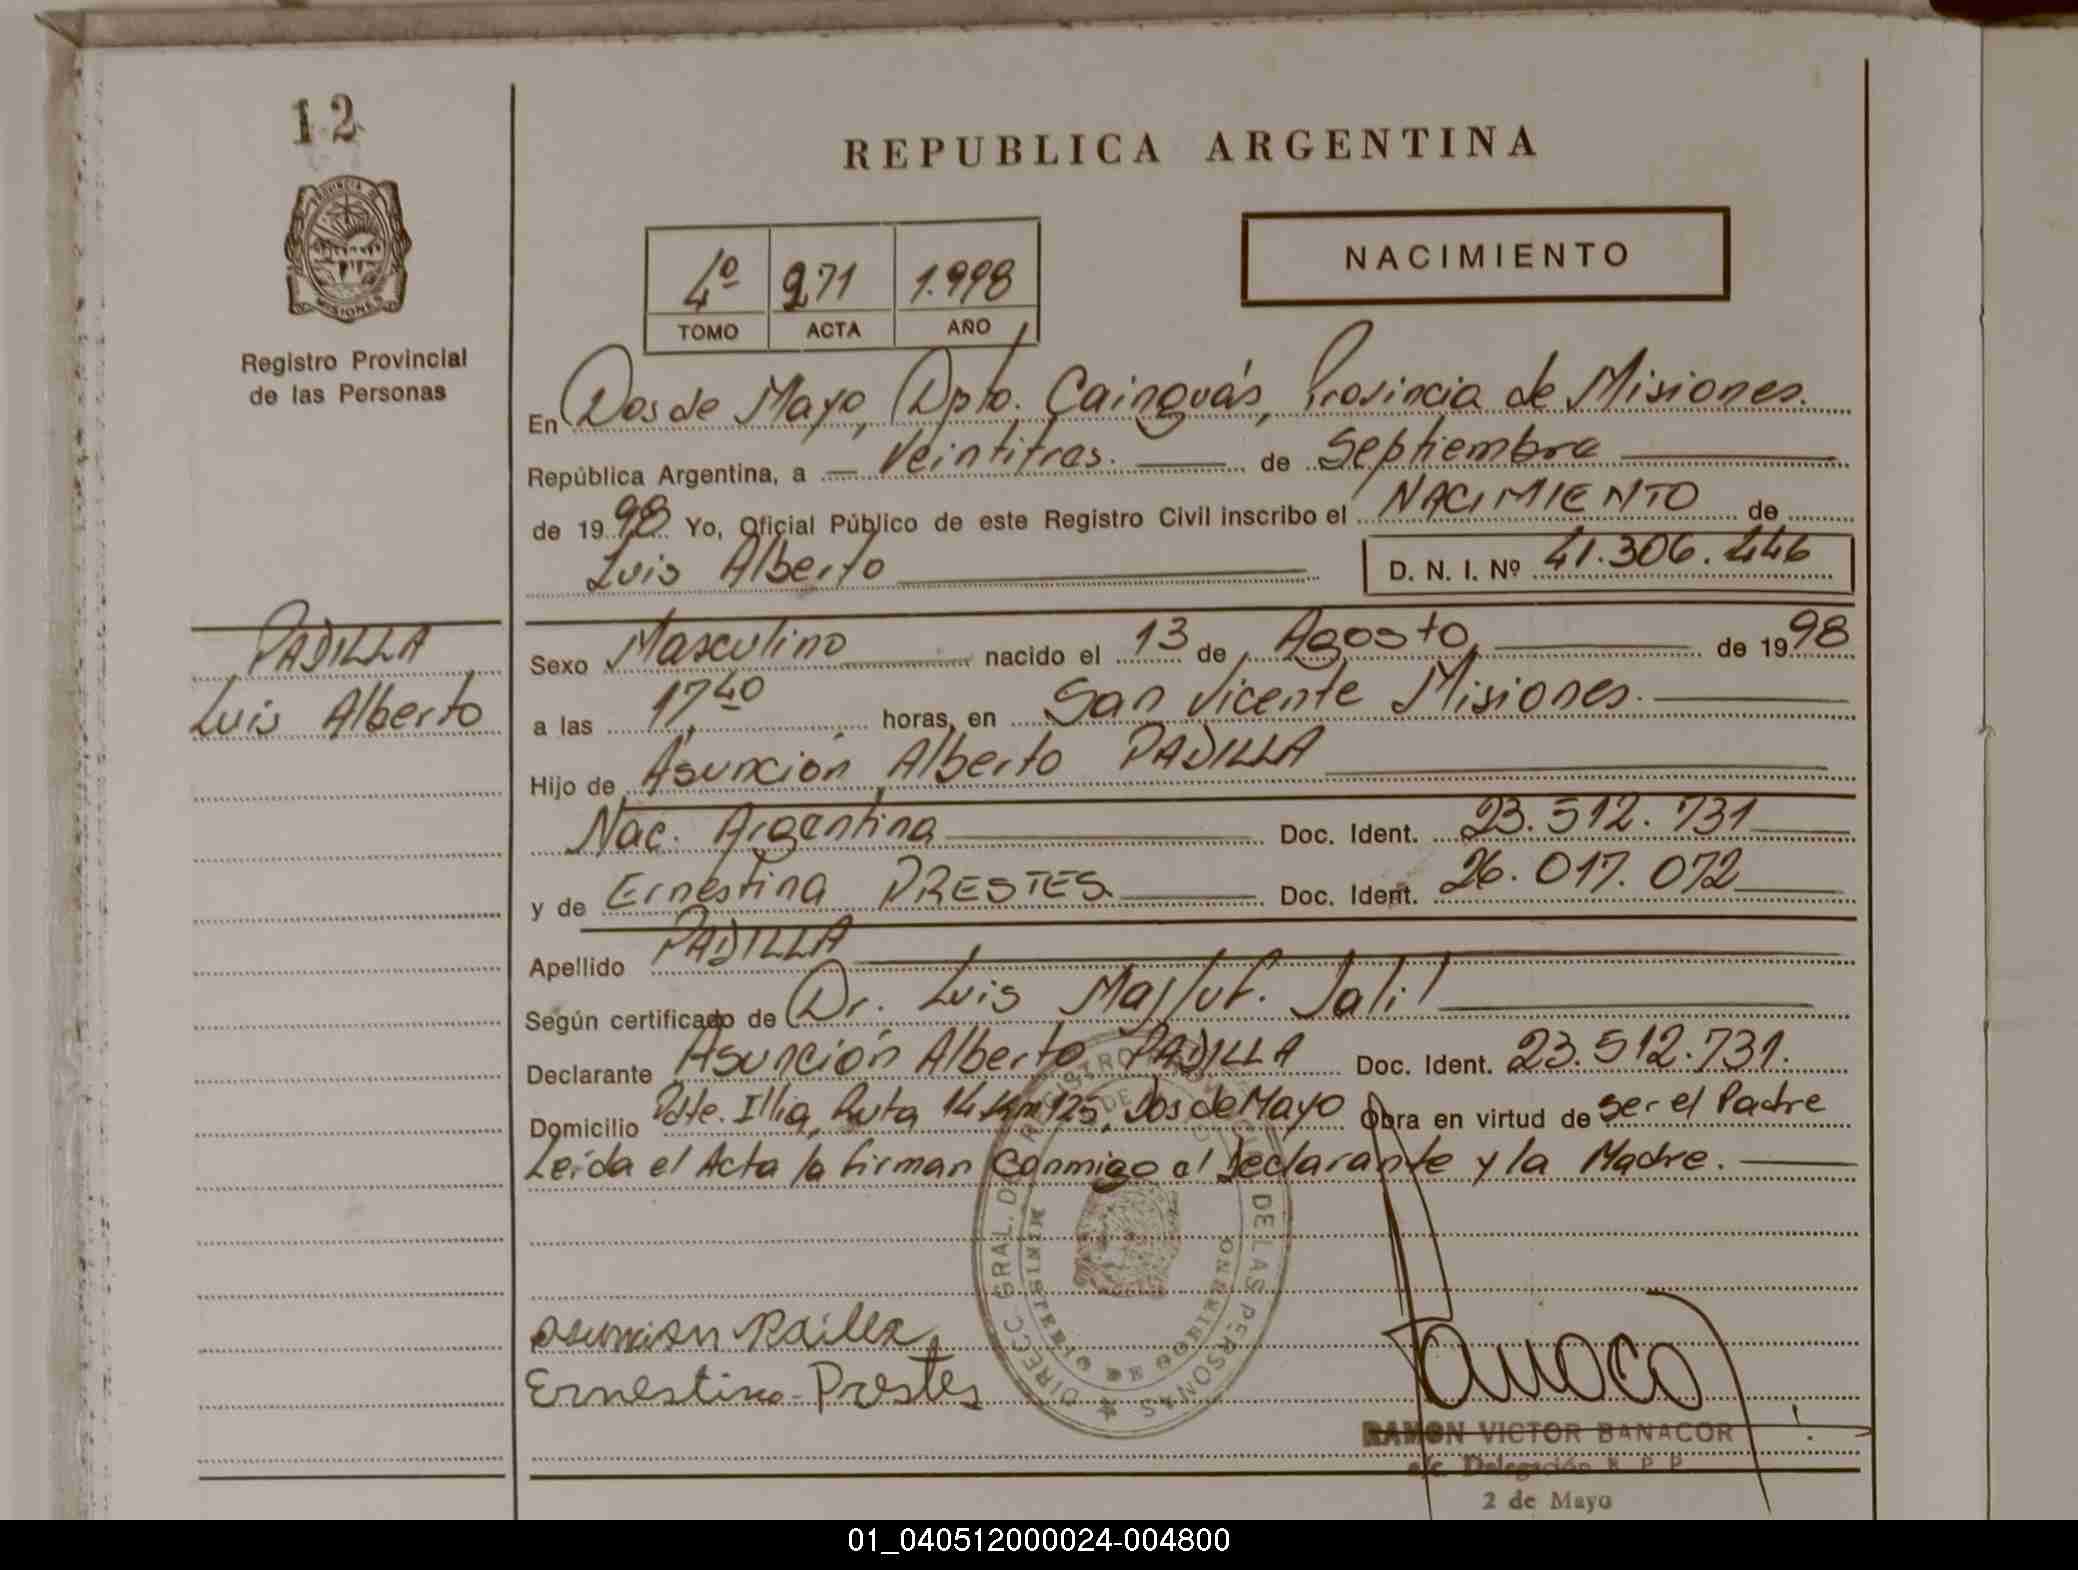 12
REPUBLICA ARGENTINA
PROVINCIA DE
MISIONES
Registro Provincial
de las Personas
NACIMIENTO
4º 271 1.998
TOMO ACTA AÑO
En Dos de Mayo, Dpto. Cainguás, Provincia de Misiones.
República Argentina, a Veintitres. de Septiembre
de 19 98 Yo, Oficial Público de este Registro Civil inscribo el NACIMIENTO de
Luis Alberto D. N. I. Nº 41.306.446
PADILLA
Luis Alberto
Sexo Masculino nacido el 13 de Agosto de 19 98
a las 17 40 horas, en San Vicente Misiones.
Hijo de Asunción Alberto PADILLA
Nac. Argentina Doc. Ident. 23.512.731
y de Ernestina PRESTES Doc. Ident. 26.017.072
Apellido PADILLA
Según certificado de Dr. Luis Jalil
Declarante Asunción Alberto PADILLA Doc. Ident. 23.512.731.
Domicilio Pdte. Illia, Ruta 14 km 125, Dos de Mayo Obra en virtud de ser el Padre
Leída el Acta la firman conmigo el Declarante y la Madre.
DIRECC. GRAL. DE REGISTRO PROVINCIAL DE LAS PERSONAS
MINISTERIO DE GOBIERNO
Ernestina Prestes
RAMON VICTOR BANACOR
a/c. Delegación R. P. P.
2 de Mayo
01_040512000024-004800